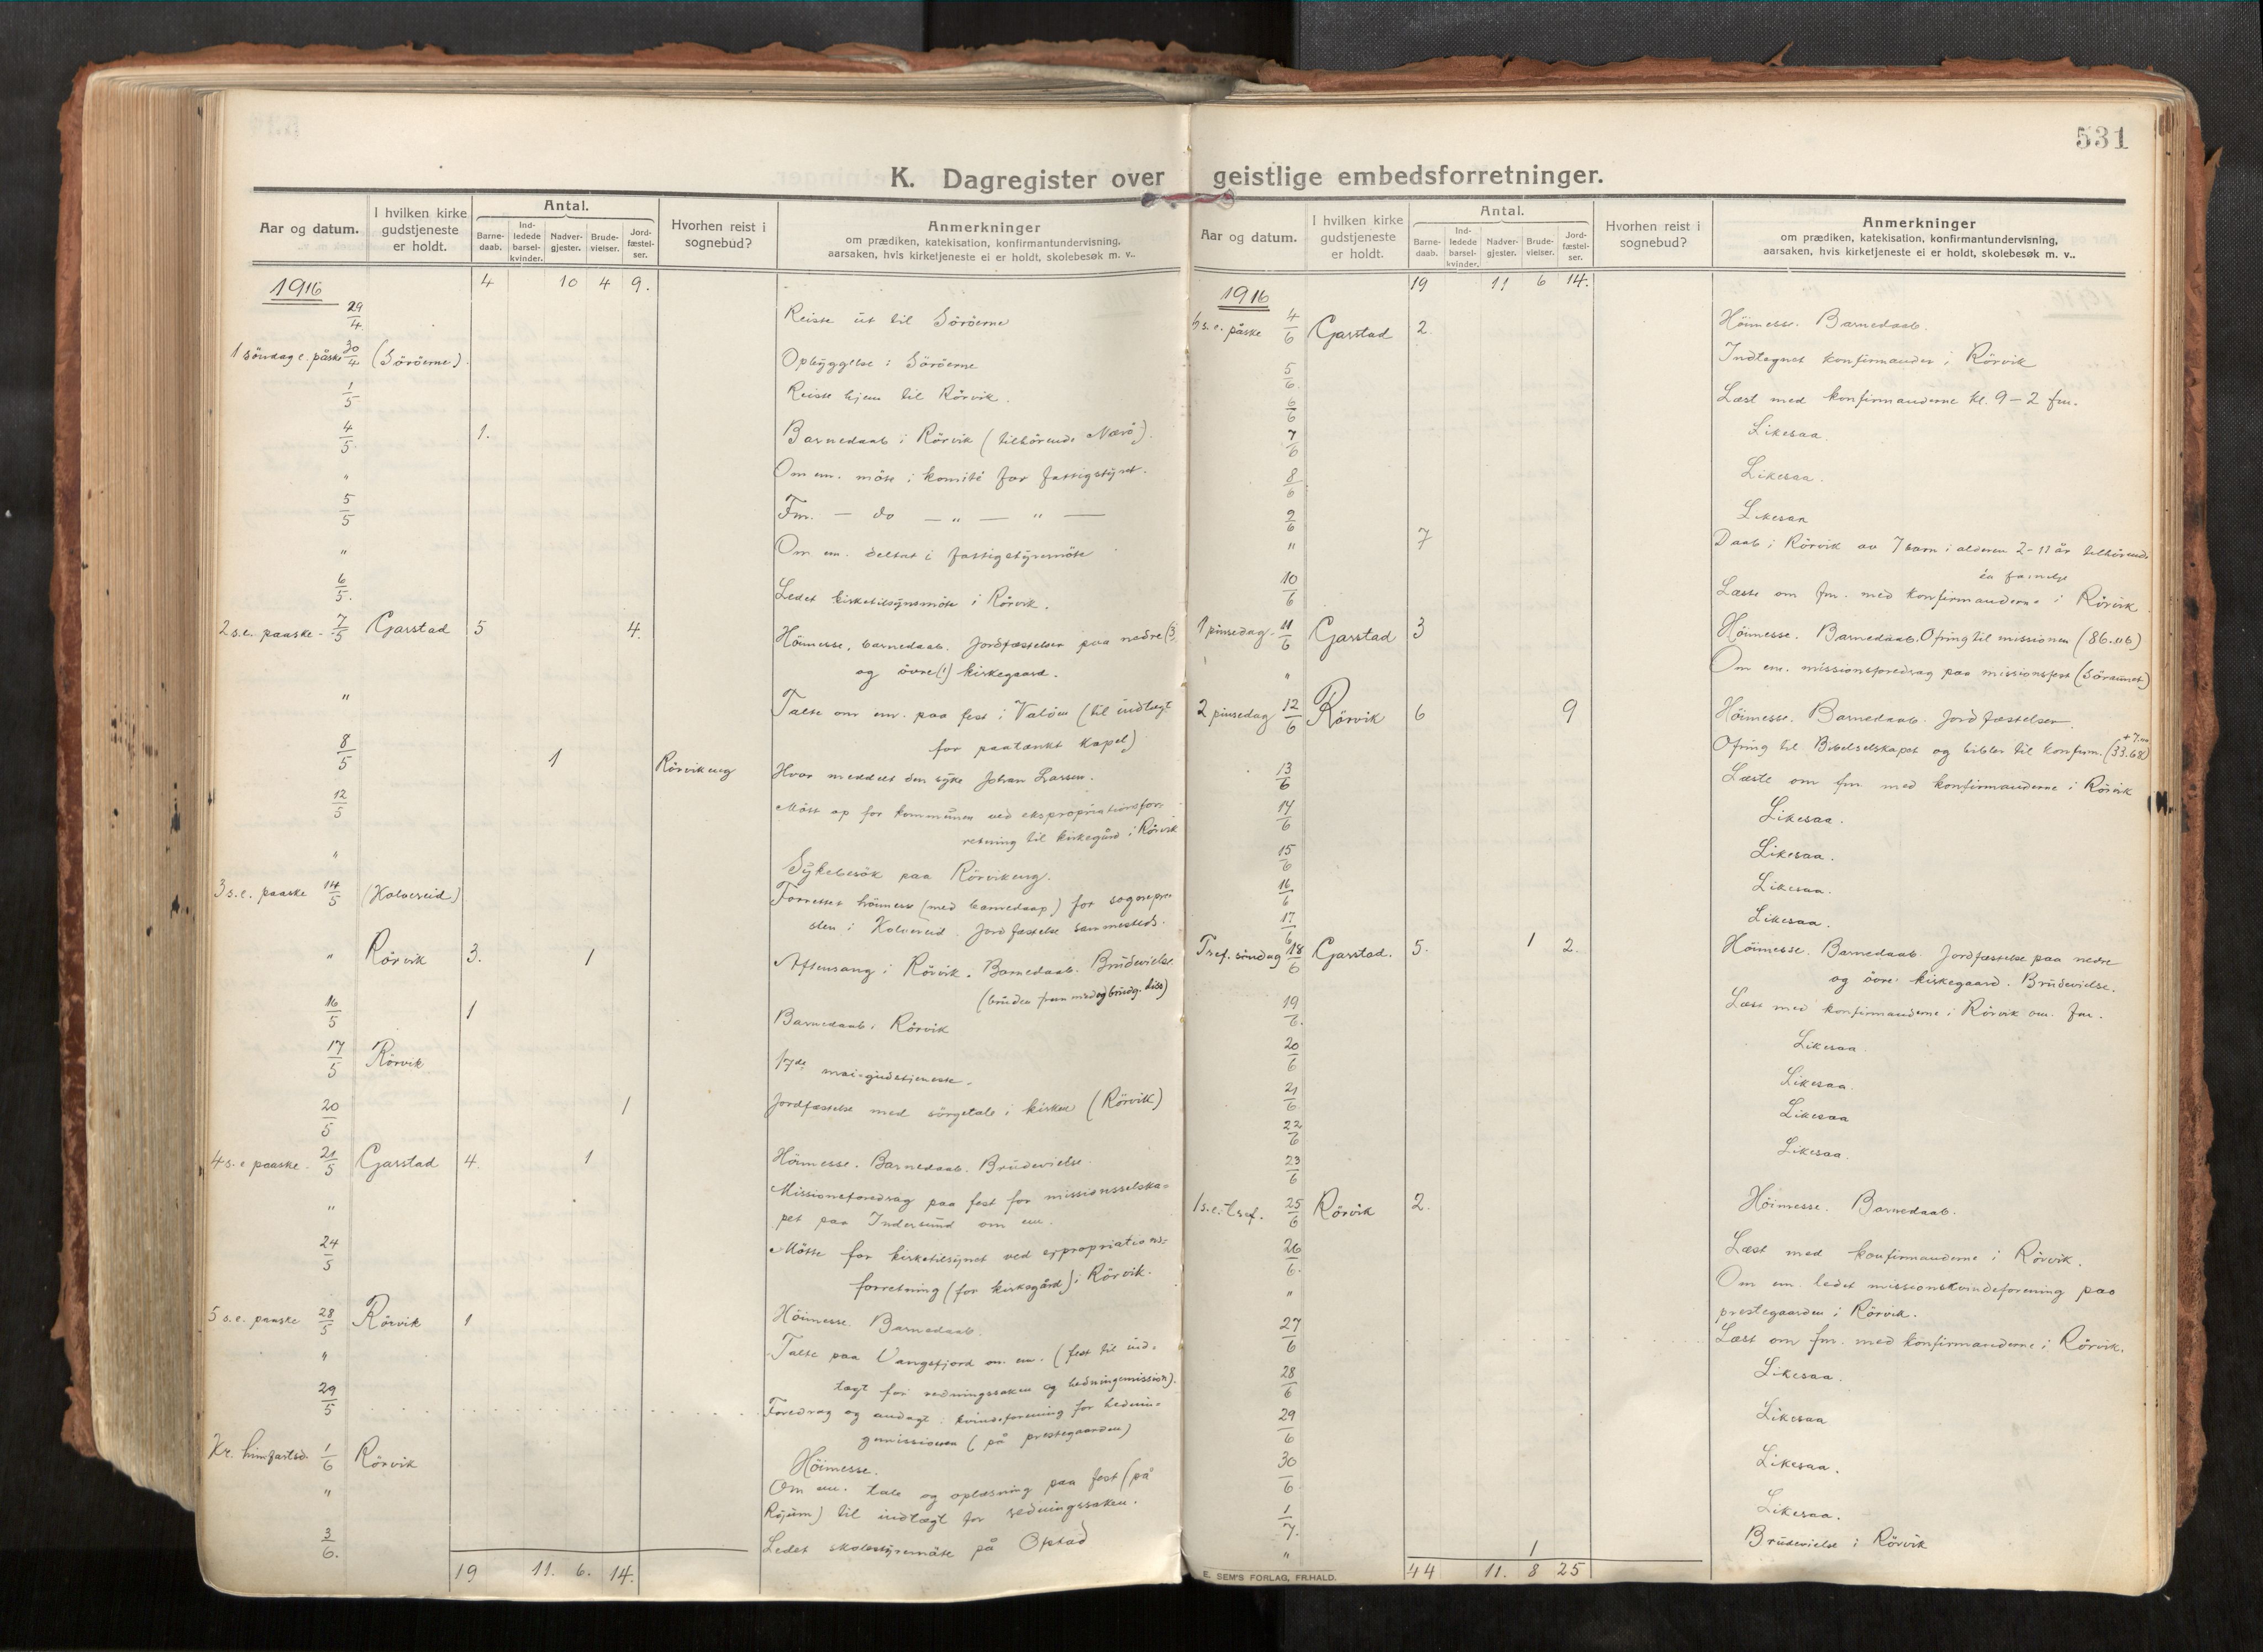 531
K. Dagregister over geistlige embedsforretninger.
Aar og datum.
I hvilken kirke gudstjeneste er holdt.
Antal.
Barne-daab.
Ind-ledede barsel-kvinder.
Nadver-gjester.
Brude-vielser.
Jord-fæstel-ser.
Hvorhen reist i sognebud?
Anmerkninger
om prædiken, katekisation, konfirmantundervisning,
aarsaken, hvis kirketjeneste ei er holdt, skolebesøk m. v..
1916 4 10 4 9.
29/4. Reiste ut til Söröerne
1 söndag e. påske 30/4 (Söröerne). Opbyggelse i Söröerne
1/5 Reiste hjem til Rörvik.
4/5 1. Barnedaab i Rörvik (tilhörende Nærö).
" Om em. möte i komité for fattigstyret.
5/5 Fm. — do — " — " —
" Om em. deltat i fattigstyremöte
6/5. Ledet kirketilsynsmöte i Rörvik.
2 s.e. paaske 7/5 Garstad 5 4. Höimesse, barnedaab. Jordfæstelser paa nedre (3)
og övre (1) kirkegaard.
" Talte om em. paa fest i Valöen (til indtægt
for paatænkt kapel)
8/5 1 Rörvikeng Hvor meddelt den syke Johan Larsen.
12/5 Mött op for kommunen ved ekspropriationsfor-
retning til kirkegård i Rörvik
" Sykebesök paa Rörvikeng.
3 s.e. paaske 14/5 (Kolvereid) Forrettet höimesse (med barnedaap) for sognepre-
sten i Kolvereid. Jordfæstelse sammesteds.
" Rörvik 3. 1 Aftensang i Rörvik. Barnedaab. Brudevielse
(bruden frem med og brudg. diss)
16/5 1 Barnedaab i Rörvik
17/5 Rörvik 17de mai-gudstjeneste.
20/5 1 Jordfæstelse med sörgetale i kirken (Rörvik)
4 s.e paaske. 21/5 Garstad 4. 1 Höimesse. Barnedaab. Brudevielse.
" Missionsforedrag paa fest for missionsselska-
pet paa Indersund om em.
24/5 Mötte for kirketilsynet ved expropriations-
forretning (for kirkegård) i Rörvik.
5 s.e. paaske 28/5 Rörvik 1 Höimesse. Barnedaab.
" Talte paa Vangsfjord om em. (fest til ind-
tægt for redningssaken og hedningemission).
29/5 Foredrag og andagt i kvindeforening for hednin-
gemissionen (på prestegaarden)
Kr. himfartsd. 1/6 Rörvik Höimesse.
" Om em. tale og oplæsning paa fest (på
til indtægt for redningssaken.
3/6. Ledet skolestyremöte på Opstad
19 11. 6. 14.
Aar og datum.
I hvilken kirke gudstjeneste er holdt.
Antal.
Barne-daab.
Ind-ledede barsel-kvinder.
Nadver-gjester.
Brude-vielser.
Jord-fæstel-ser.
Hvorhen reist i sognebud?
Anmerkninger
om prædiken, katekisation, konfirmantundervisning,
aarsaken, hvis kirketjeneste ei er holdt, skolebesøk m. v..
1916 19 11 6 14.
6 s.e. påske 4/6 Garstad 2. Höimesse. Barnedaab.
5/6. Indtegnet konfirmander i Rörvik
6/6 Læst med konfirmanderne kl. 9–2 fm.
7/6 Likesaa.
8/6 Likesaa.
9/6 Likesaa
" 7 Daab i Rörvik av 7 barn i alderen 2–11 år tilhörende
én familje
10/6 Læste om fm. med konfirmanderne i Rörvik
1 pinsedag 11/6 Garstad 3 Höimesse. Barnedaab. Ofring til missionen (86.06)
" Om em. missionsforedrag paa missionsfest
2 pinsedag 12/6 Rörvik 6 9 Höimesse. Barnedaab. Jordfæstelser.
Ofring til Bibelselskapet og bibler til konfirm. (33.68)
13/6 Læste om fm. med konfirmanderne i Rörvik
14/6 Likesaa.
15/6 Likesaa.
16/6 Likesaa.
17/6 Likesaa.
Tref. söndag 18/6 Garstad. 5. 1 2. Höimesse. Barnedaab. Jordfæstelse paa nedre
og övre kirkegaard. Brudevielse.
19/6. Læst med konfirmanderne i Rörvik om fm.
20/6 Likesaa
21/6 Likesaa.
22/6 Likesaa
23/6 Likesaa.
1 s.e. tref. 25/6 Rörvik 2. Höimesse. Barnedaab.
26/6. Læst med konfirmanderne i Rörvik.
" Om em. ledet missionskvindeforening paa
prestegaarden i Rörvik.
27/6 Læst om fm. med konfirmanderne i Rörvik.
28/6 Likesaa.
29/6 Likesaa
30/6 Likesaa.
1/7. Likesaa.
" 1 Brudevielse i Rörvik
44 11. 8 25
E. SEM'S FORLAG, FR.HALD.